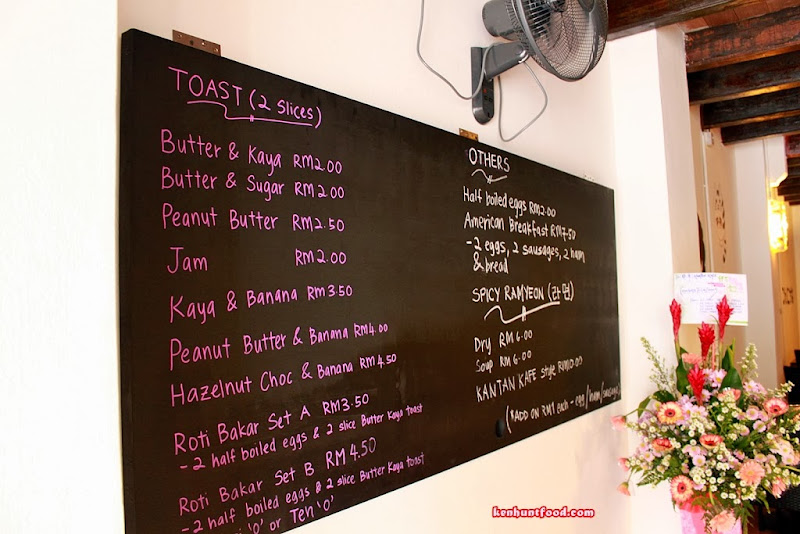 TOAST (2 slices)
Butter & Kaya RM2.00
Butter & Sugar RM2.00
Peanut Butter RM2.50
Jam RM2.00
Kaya & Banana RM3.50
Peanut Butter & Banana RM4.00
Hazelnut Choc & Banana RM4.50
Roti Bakar Set A RM3.50
- 2 half boiled eggs & 2 slice Butter Kaya toast
Roti Bakar Set B RM4.50
- 2 half boiled eggs & 2 slice Butter Kaya toast
'O' or Ten 'O'
OTHERS
Half boiled eggs RM2.00
American Breakfast RM7.50
- 2 eggs, 2 sausages, 2 ham
& bread
SPICY RAMYEON (라면)
Dry RM6.00
Soup RM6.00
KANTAN KAFE style RM10.00
(*ADD ON RM1 each - egg/ham/sausage)
kenhuntfood.com